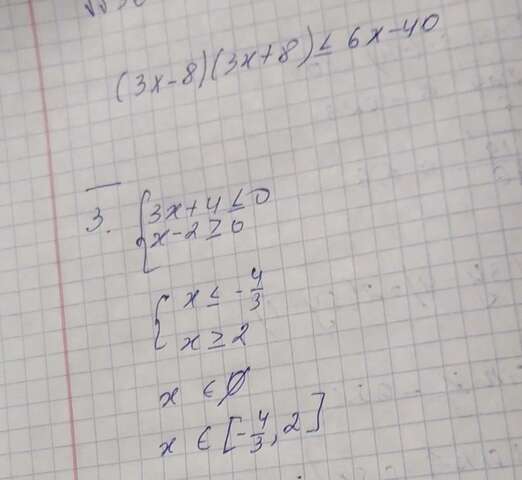 (3x-8)(3x+8) ≤ 6x-40
3. { 3x+4 ≤ 0
x-2 ≥ 0
{ x ≤ -4/3
x ≥ 2
x ∈ ∅
x ∈ [-4/3, 2]